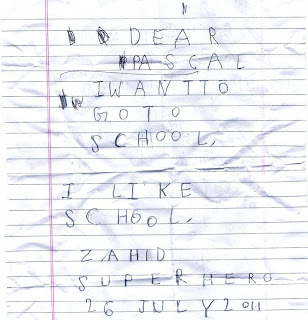 DEAR
PASCAL
I WANT TO
GO TO
SCHOOL.
I LIKE
SCHOOL.
ZAHID
SUPERHERO
26 JULY 2011